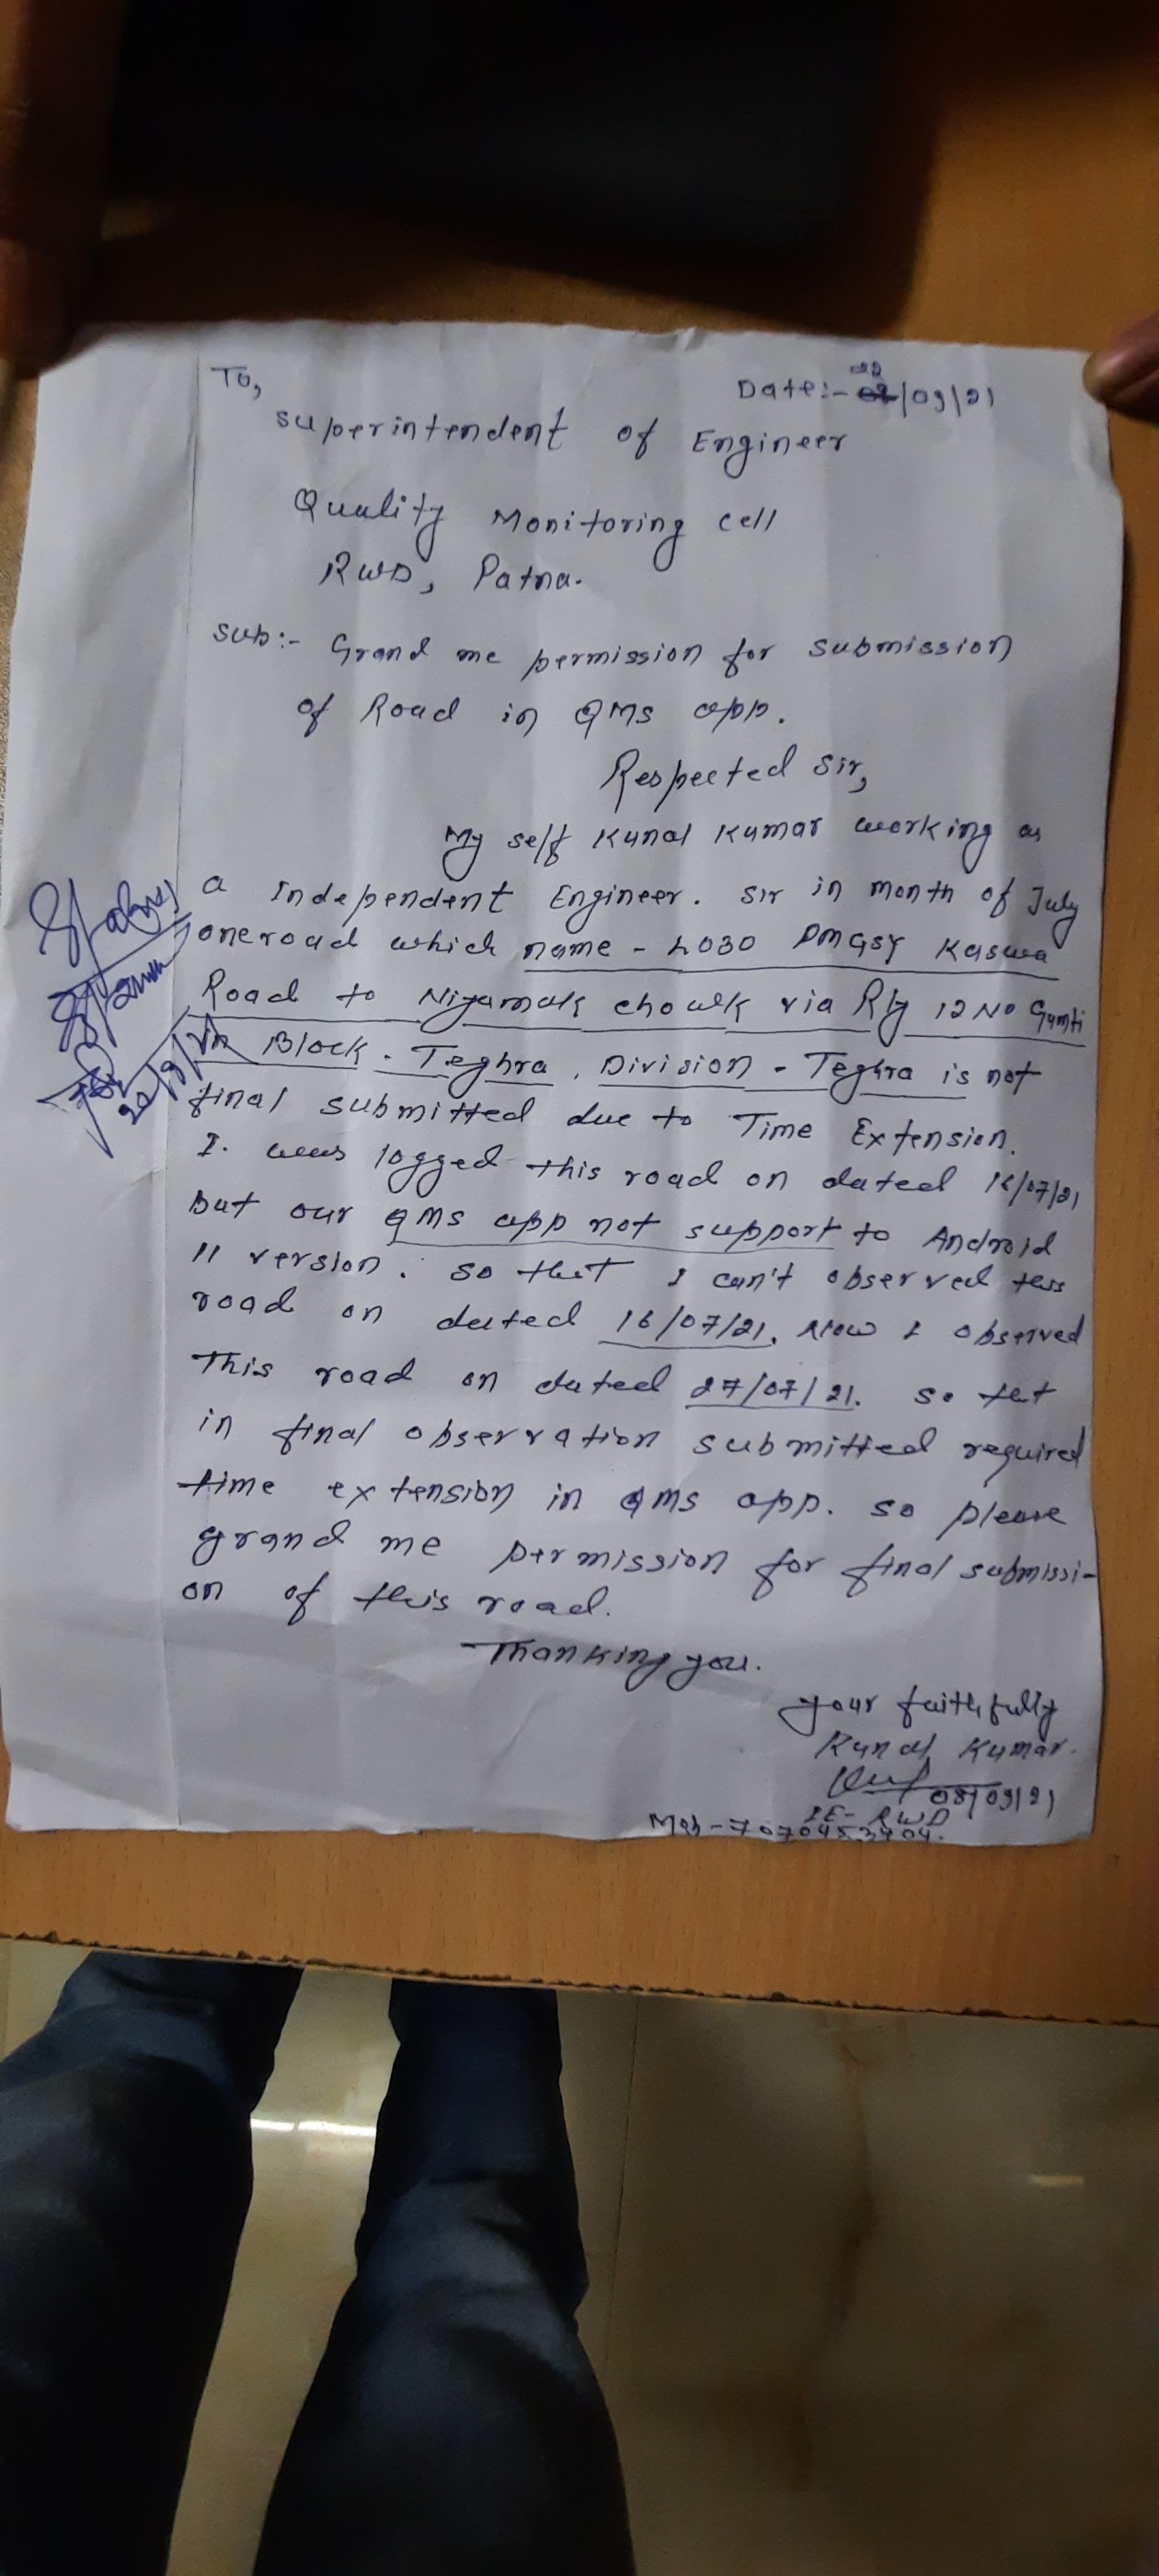 To,
Date:- 22/09/21
Superintendent of Engineer
Quality Monitoring cell
RWD, Patna.
Sub:- Grand me permission for submission
of Road in QMS app.
Respected Sir,
My self Kunal Kumar working as
a Independent Engineer. Sir in month of July
one road which name - L030 PMGSY Kaswa
Road to Nijamak chowk via Rly 12 No Gumti
in Block - Teghra, Division - Teghra is not
final submitted due to Time Extension.
I. was logged this road on dated 16/07/21
But our QMS app not support to Android
11 version. so that I can't observed this
road on dated 16/07/21. Now I observed
This road on dated 27/07/21. so that
in final observation submitted required
time extension in QMS app. so please
grand me permission for final submissi-
on of this road.
Thanking you.
your faithfully
Kunal Kumar.
08/09/21
IE- RWD
Mob-7070453404.
22/9/21